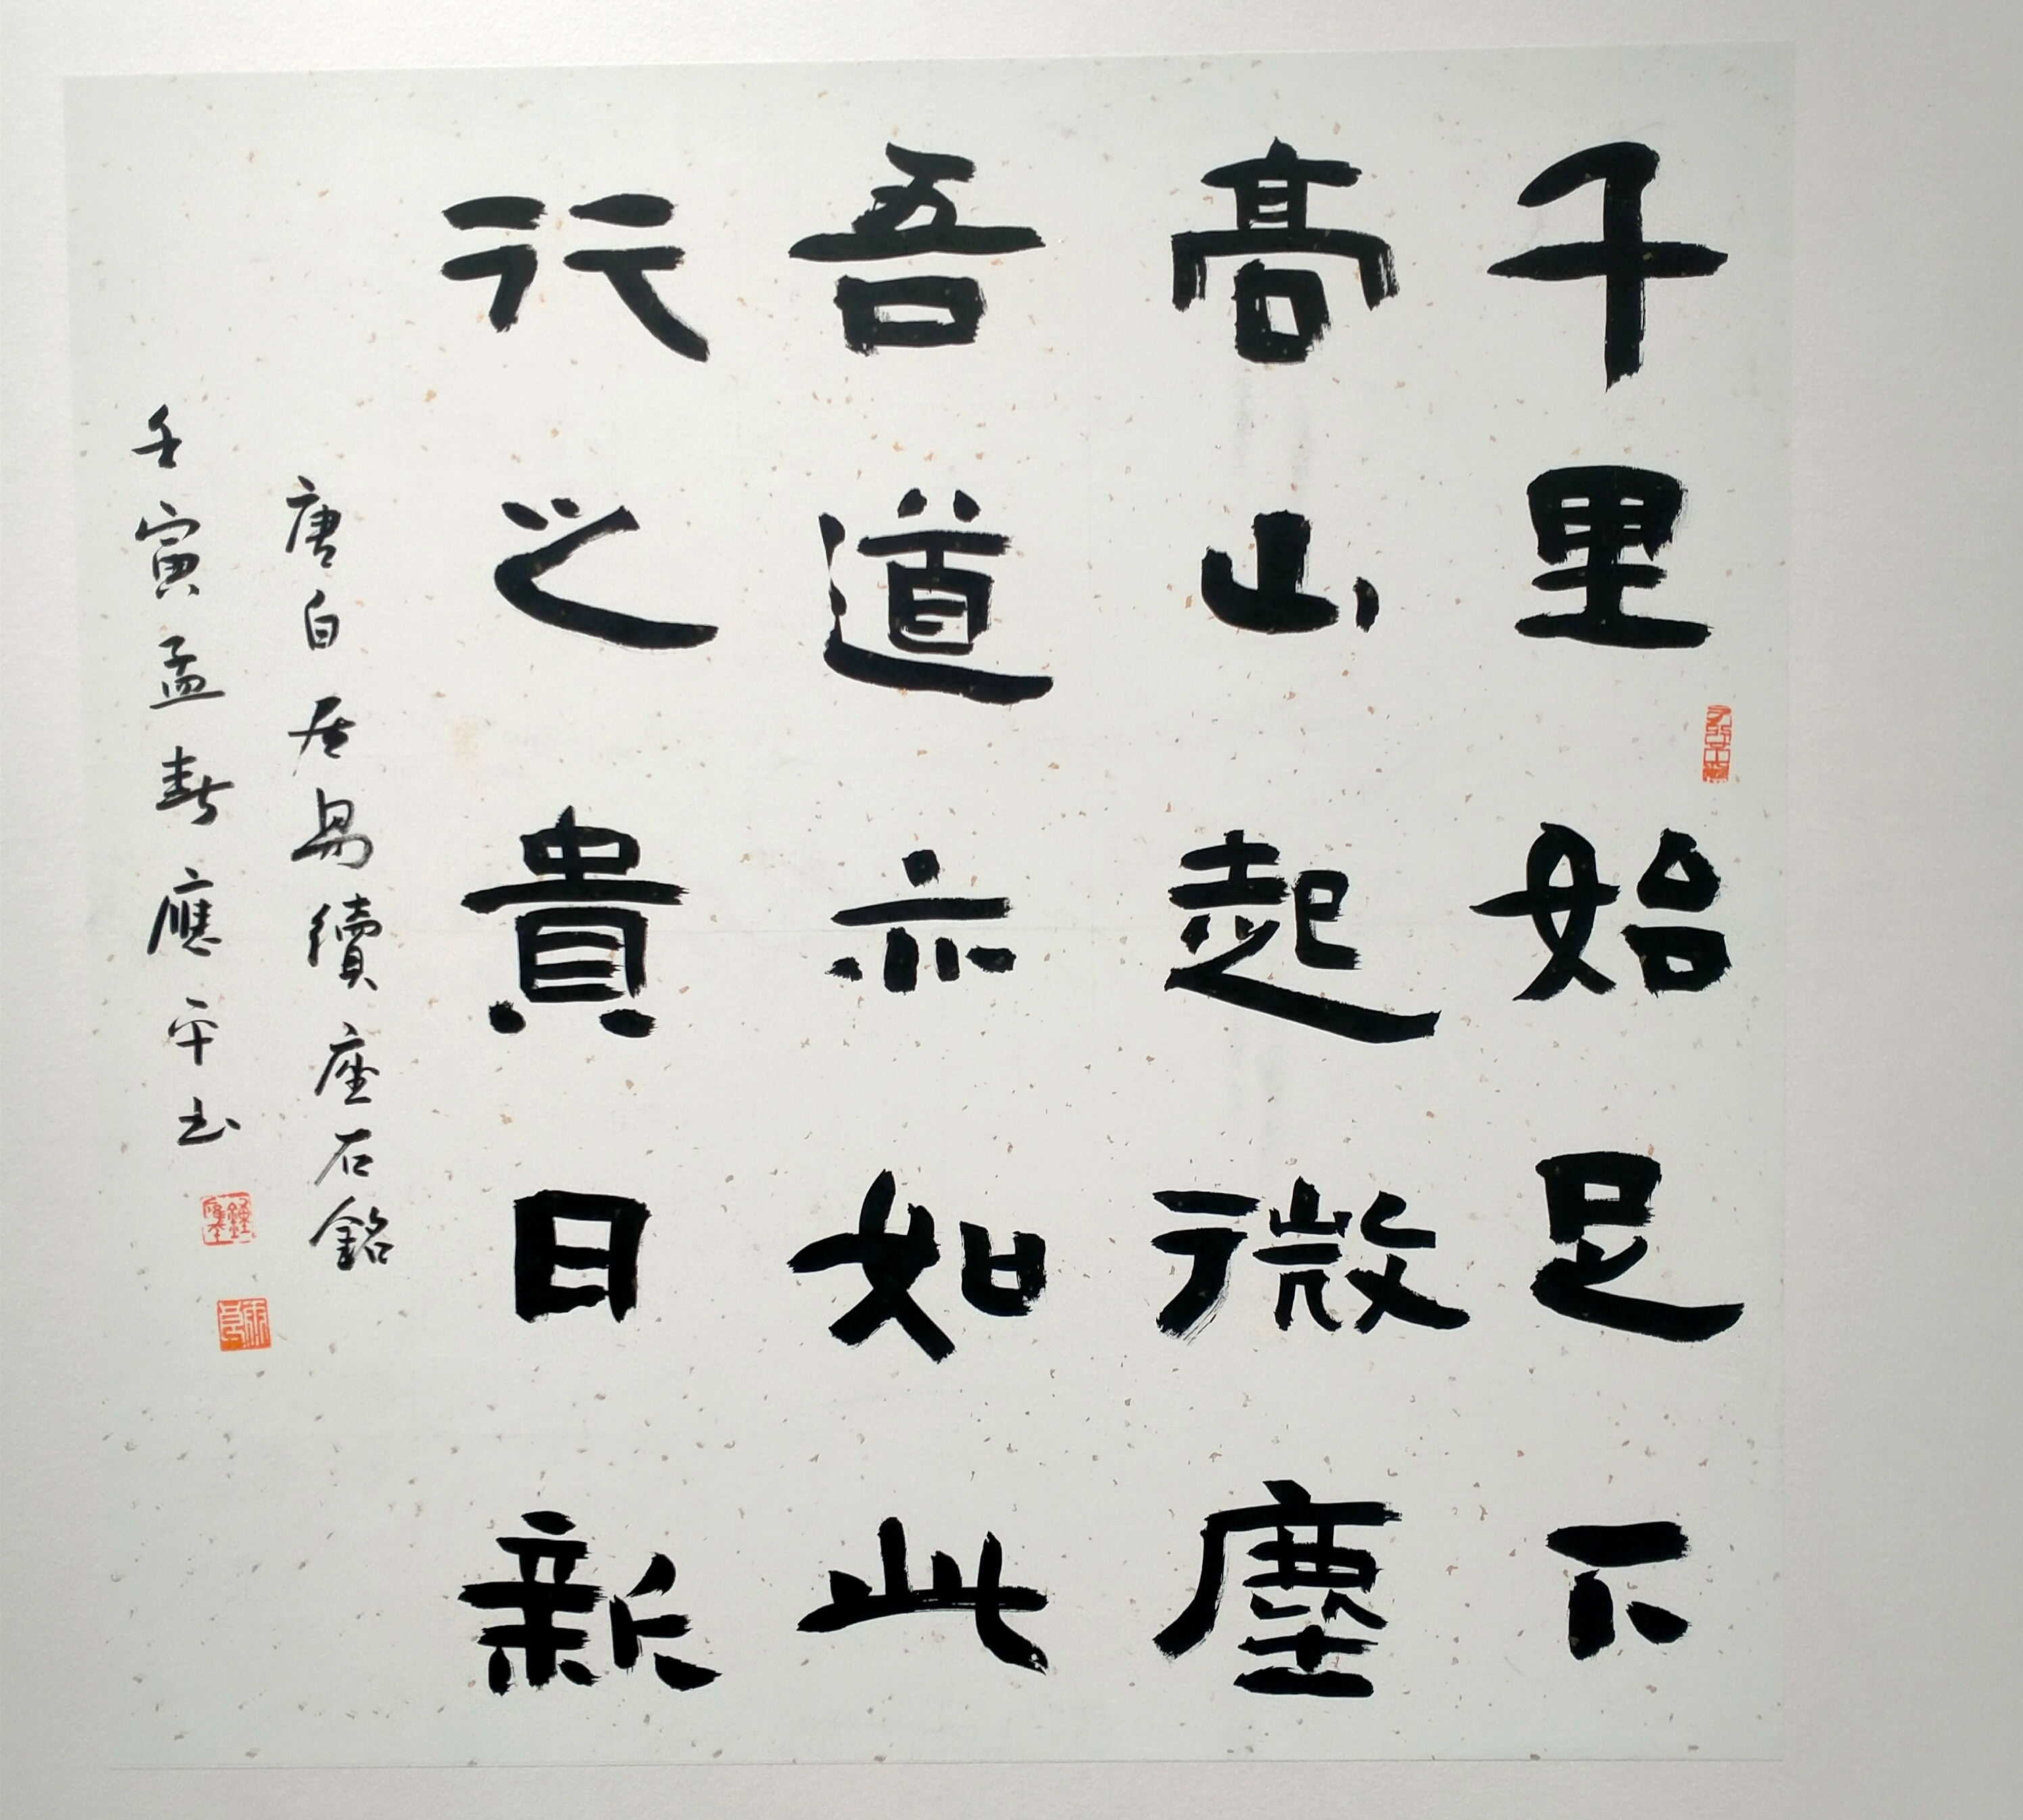 千里始足下
高山起微塵
吾道亦如此
行之貴日新
唐白居易續座右銘
壬寅孟春應平书